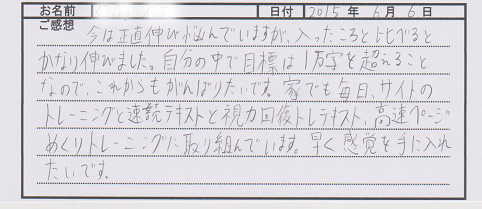 お名前 日付 2015年 6月 6日
ご感想
今は正直伸び悩んでいますが、入ったころと比べると
かなり伸びました。自分の中で目標は1万字を超えること
なので、これからもがんばりたいです。家でも毎日、サイトの
トレーニングと速読テキストと視力回復トレテキスト、高速ページ
めくりトレーニングに取り組んでいます。早く感覚を手に入れ
たいです。